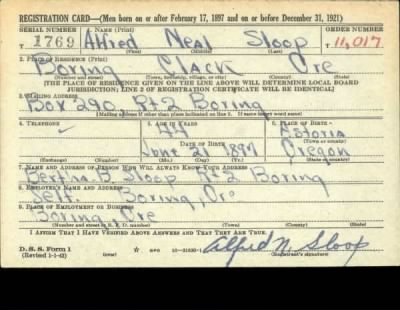 REGISTRATION CARD—(Men born on or after February 17, 1897 and on or before December 31, 1921)
SERIAL NUMBER 1. NAME (Print) ORDER NUMBER
T 1769 Alfred Neal Sloop T 11,017
(First) (Middle) (Last)
2. PLACE OF RESIDENCE (Print)
Boring Clack Ore
(Number and street) (Town, township, village, or city) (County) (State)
[THE PLACE OF RESIDENCE GIVEN ON THE LINE ABOVE WILL DETERMINE LOCAL BOARD
JURISDICTION; LINE 2 OF REGISTRATION CERTIFICATE WILL BE IDENTICAL]
3. MAILING ADDRESS
Box 290, Rt 2 Boring
[Mailing address if other than place indicated on line 2. If same insert word same]
4. TELEPHONE 5. AGE IN YEARS 6. PLACE OF BIRTH
44 Astoria
DATE OF BIRTH (Town or county)
June 21 1897 Oregon
(Exchange) (Number) (Mo.) (Day) (Yr.) (State or country)
7. NAME AND ADDRESS OF PERSON WHO WILL ALWAYS KNOW YOUR ADDRESS
Bertha B Sloop Rt 2 Boring
8. EMPLOYER'S NAME AND ADDRESS
Self. Boring, Or
9. PLACE OF EMPLOYMENT OR BUSINESS
Boring, Ore
(Number and street or R. F. D. number) (Town) (County) (State)
I AFFIRM THAT I HAVE VERIFIED ABOVE ANSWERS AND THAT THEY ARE TRUE.
D. S. S. Form 1
(Revised 1-1-42) (over) Alfred N. Sloop
(Registrant's signature)